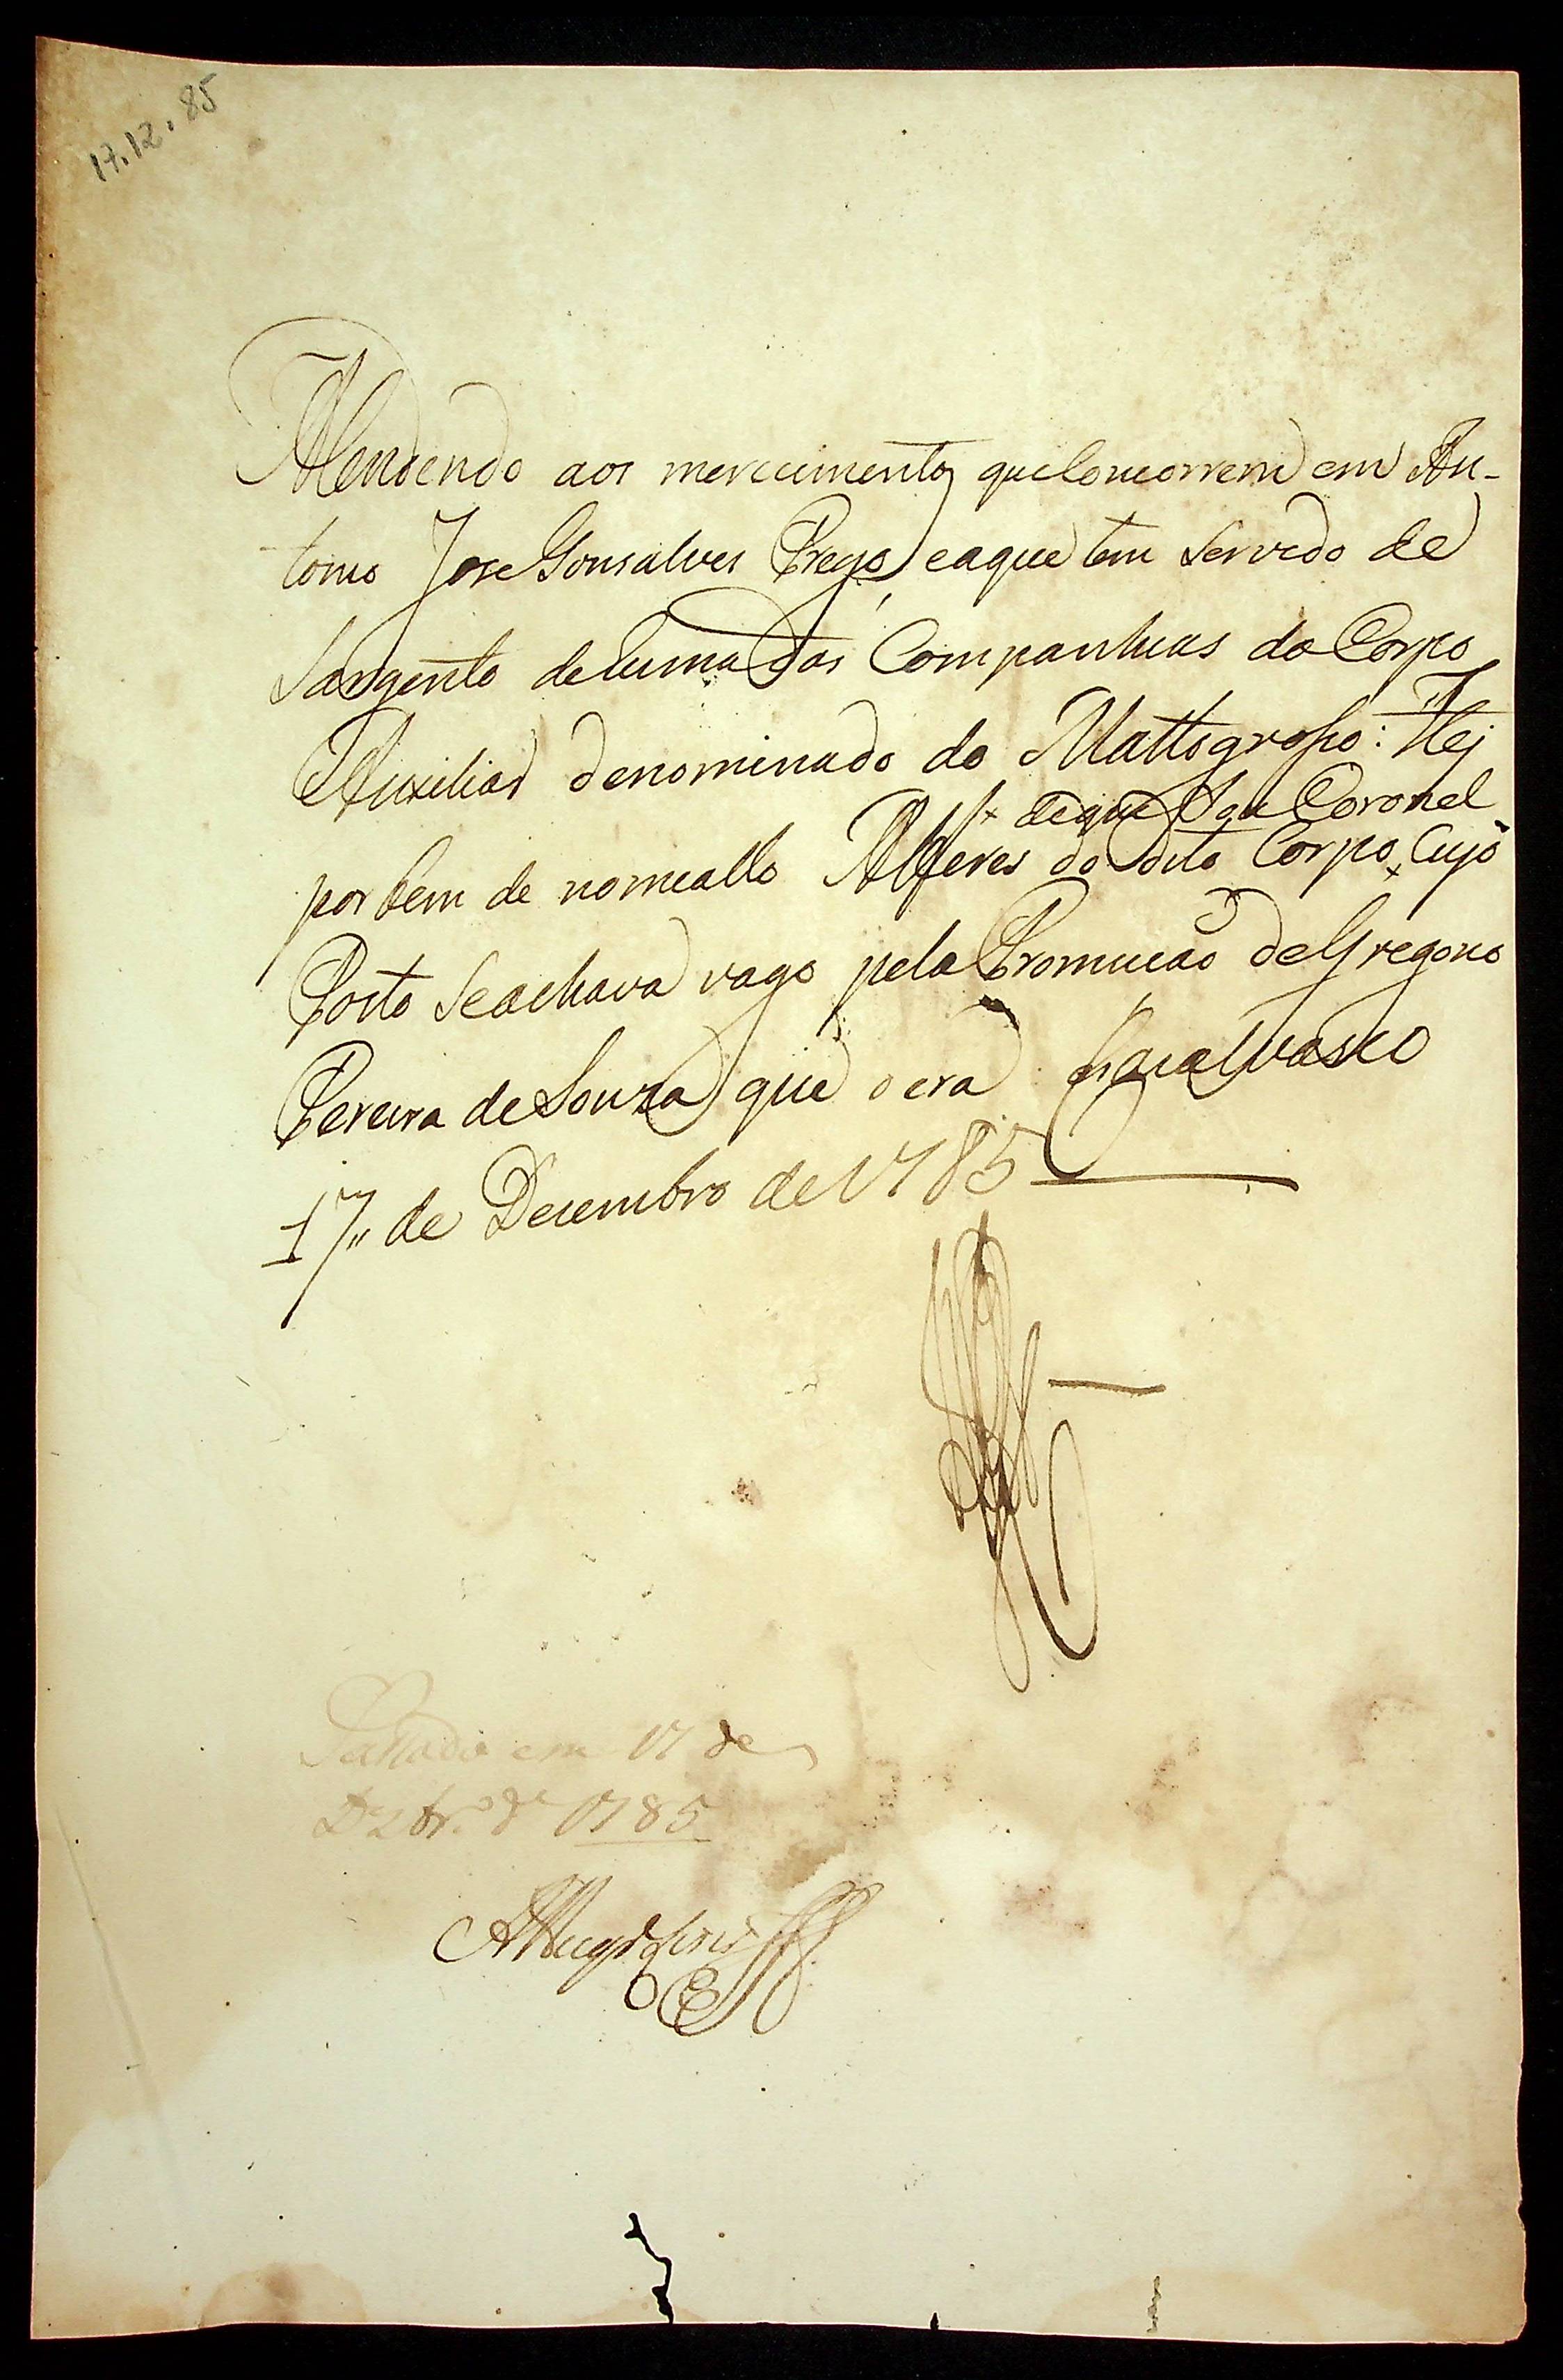 17.12.85
Attendendo aos merecimentos que Concorrem em An-
tonio Jose Gonsalves Prego, eaque tem Servido de
Sargento de huma das Companhias do Corpo
Auxiliar denominado do Mattogrosso: Hej
x deque Sou Coronel
por bem de nomeallo Alferes do dito Corpo x Cujo
Posto Seachava vago pela Promucaõ de Gregorio
Pereira de Souza que o era Cazalvasco
17,, de Decembro de 1785
em 17 de
Dzbr.º de 1785